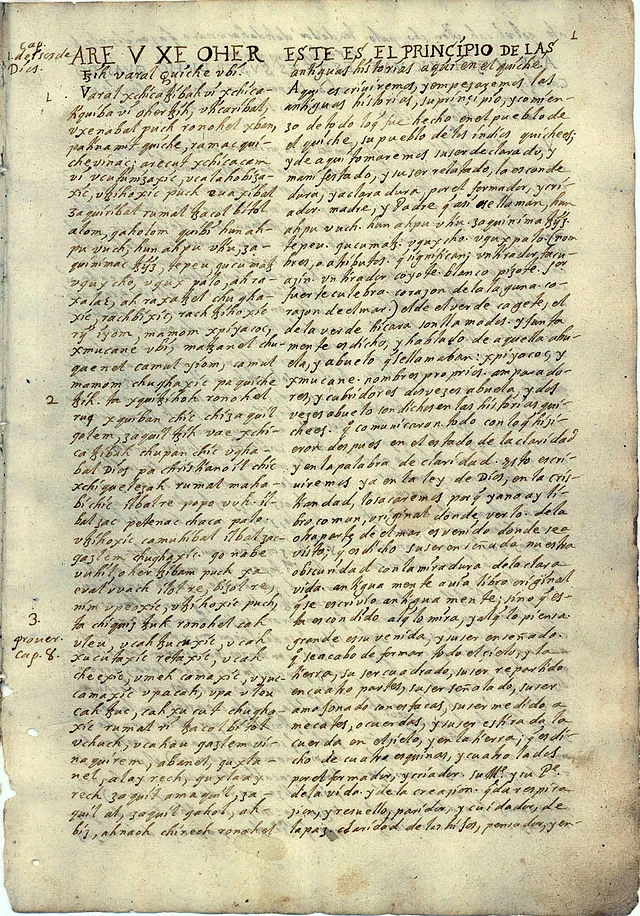 1
Cap.
de ser de
Dios.
ARE V XE OHER
tzih varal Quiche vbi.
1
Varal xchicatzibah vi xchica-
tzquiba vi ohertzih, vticaribal,
vxenabal puch ronohel xban,
patinamit quiche, ramac qui-
che vinac; arecut xchicacam
vi vcutunizaxic, vcalahobiza-
xic, vtzihoxic puch euaxibal
zaquiribal rumal tzacol bitol
alom, qaholom quibi hun ah-
pu vuch, hun ahpu vtiu, za-
quinimac tzyz, tepeu, qucumatz
vqux cho, vqux palo, ah ra-
xalaz, ah raxatzel chugha-
xic, rachbixic, rachtzihoxic
rij iyom, mamom xpiyacoc,
xmucane vbi, matzanel chu-
quenel camul iyom, camul
mamom chughaxic pa quiche
2
tzih. ta xquitzihoh ronohel
ruq xquiban chic chi zaquil
golem, zaquil tzih vae xchi-
catzibah chupan chic vgha-
bal Dios pa christianoil chic
xchiquelezah rumal maha-
bi chic ilbal re popo vuh. il-
bal zac petenac chaca palo.
vtzihoxic camuhibal ilbal zac-
gazlem chughaxic. go nabe
vuhil, oher tzibam puch xa
eval vvach ilol re, bizol re,
nim vpeoxic, vtzihoxic puch,
3.
prover.
cap. 8.
ta chiquis tzuk ronohel cah
vleu, vcah tzucuxic, vcah
xucutaxic retaxic, vcah
cheexic, vmeh camaxic, vyuc
camaxic vpa cah, vpa vleu
cah tzuc, cah xucut chugha-
xic rumal ri tzacol bitol
vchuch, vcahau gazlem vi-
naquirem, abanel, quxla-
nel, alay rech, quxlaay
rech zaquil amaquil, za-
quil al, zaquil qahol, ah-
biz, ahnaoh chirech ronohel
ESTE ES EL PRINCIPIO DE LAS
antiguas historias aqui en el quiche.
Aqui escriuiremos, y empezaremos las
antiguas historias, su principio, y comien-
zo de todo lo q̃ fue hecho en el pueblo de
el quiche, su pueblo de los indios quichees;
y de aqui tomaremos su ser declarado, y
manifestado, y su ser relatado, la esconde
dura, y aclaradura, por el formador, y cri-
ador. madre, y Padre q̃ asi se llaman, hun
ahpu vuch. hun ahpu vtiu. zaquinima tzijz.
tepeu. qucumatz. vqux cho. vqux palo. (nom
bres, o atributos. q̃ significan; vn tirador tacu-
atzin. vn tirador coyote. blanco pizote. So
fuerte culebra. corazon de la laguna. co-
razon de el mar.) el de el verde cagete, el
de la verde hicara son llamados. y junta
mente es dicho, y hablado de aquella abu-
ela, y abuelo q̃ se llamaban: xpiyacoc, y
xmucane. nombres proprios. amparado-
res, y cubridores dos vezes abuela, y dos
vezes abuelo son dichos en las historias qui-
chees. q̃ comunicaron todo con lo q̃ hizi-
eron despues en el estado de la claridad
y en la palabra de claridad. Esto escri-
uiremos ya en la ley de Dios, en la cris-
tiandad, lo sacaremos porq̃ ya no ay li-
bro comun, original donde verlo. de la
otra parte de el mar es venido donde se a
visto; q̃ es dicho su ser enseñada nuestra
obscuridad con la miradura de la clara
vida. antiguamente auia libro original
q̃ se escriuio antiguamente; sino q̃ es-
ta escondido al q̃ lo mira, y al q̃ lo piensa.
grande es su venida, y su ser enseñado.
q̃ se acabo de formar todo el cielo, y la
tierra, su ser cuadrado, su ser repartido
en cuatro partes, su ser señalado, su ser
amojonado con estacas, su ser medido a
mecates, o cuerdas, y su ser estirada la
cuerda en el cielo, y en la tierra; q̃ es di-
cho de cuatro esquinas, y cuatro lados
por el formador, y criador. su Me. y su Pe.
de la vida. y de la creazion. q̃ da respira-
zion, y resuello, paridor, y cuidador, de
la paz. claridad de los hijos, pensador, y en-